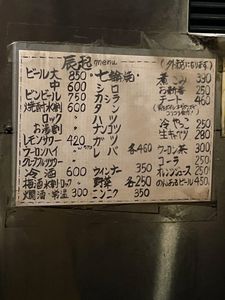 辰起 menu
(外税になります)
ビール大 850
中 600
ビンビール 750
焼酎水割
ロック
お湯割
レモンサワー 420
ウーロンハイ
グレープフルサワー
冷酒 600
梅酒水割ロック
燗酒 常温 300
七輪焼
シロ
カシラ
タン
ハツ
ナンコツ
ガツ
レバ 各460
ウィンナー 350
野菜 各250
ニンニク 350
煮こみ 390
お新香 250
デート 460
冷やっこ 250
生キャベツ 280
ウーロン茶 300
コーラ 250
オレンジジュース 250
のんあるビール 450